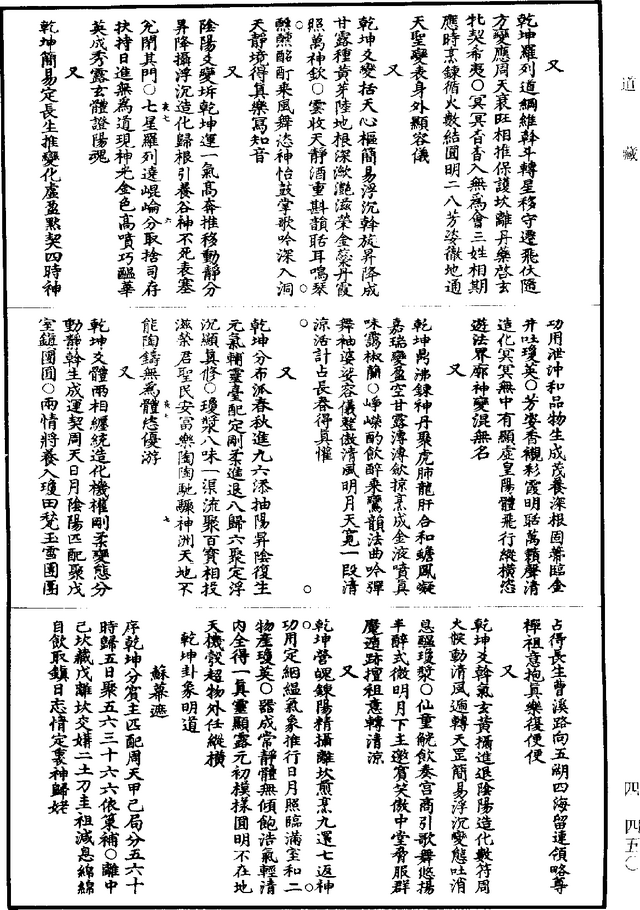 道藏
四 四五〇
又
乾坤羅列道綱維斡斗轉星移守遷飛伏隨
方變應周天衰旺相推保護坎離丹藥啟玄
牝契希夷〇冥冥杳杳入無為會三姓相期
應時烹鍊循火數結圓明二八芳姿徹地通
天聖變表身外顯容儀
又
乾坤爻變括天心樞簡易浮沉斡旋昇降成
甘露種黃芽陸地根深瀲灩滋榮金蘂丹霞
照萬神欽〇雲收天靜酒重斟韻聒耳鳴琴
醄醄酩酊乘風舞恣神怡鼓掌歌吟深入洞
天靜境得真樂寫知音
又
陰陽爻變坼乾坤運一氣高奔推移動靜分
昇降攝浮沉造化歸根引養谷神不死表塞
兌閉其門〇七星羅列達崐崙分取捨司存
扶持日進無為道現神光金色高噴巧醞華
英成秀露玄體證陽魂
又
乾坤簡易定長生推變化虛盈默契四時神
功用泄沖和品物生成茂養深根固蔕臨金
井吐瓊英〇芳姿香襯彩霞明聒萬籟聲清
造化冥冥無中有顯虛皇陽體飛行縱橫恣
遊法界廓神變混無名
又
乾坤鼎沸鍊神丹聚虎肺龍肝合和蟾鳳凝
嘉瑞變盈空甘露漙漙歛掠烹成金液噴真
味靄椒蘭〇崢嶸酌飲醉乘鸞韻法曲吟彈
舞袖婆娑容儀整傲清風明月天寬一段清
涼活計占長春得真懽
又
乾坤分布派春秋進九六添抽陽昇陰復生
元氣輔靈臺配定剛柔進退八歸六聚定浮
沉顯真修〇瓊漿八味一渠流聚百寶相投
滋榮君聖民安富樂陶陶馳驟神洲天地不
能陶鑄無為體恣優游
又
乾坤爻體兩相纏統造化機權剛柔變態分
動靜斡生成運契周天日月陰陽匹配聚戊
室鎚團圓〇兩情將養入瓊田甃玉雪團團
占得長生曹溪路向五湖四海留連領略尊
禪祖意抱真樂復便便
又
乾坤爻斡氣玄黃攝進退陰陽造化數符周
火候動清風遍轉天罡簡易浮沉變態吐消
息醞瓊漿〇仙童觥飲奏宮商引歌舞悠揚
半醉式微明月下主邀賓笑傲中堂脅服群
魔遁跡擅祖意轉清涼
又
乾坤營魄鍊陽精攝離坎煎烹九還七返神
功用定絪縕氣象推行日月照臨滿室和二
物產瓊英〇器成常靜體無傾飽浩氣輕清
內全得一真靈顯露元初模樣圓明不在地
天機彀超物外任縱橫
乾坤卦象明道
蘇幕遮
序乾坤分賓主匹配周天甲己局分五六十
時歸五日聚五六三十六六依策補〇離中
己坎藏戊離坎交媾二土刀圭祖減息綿綿
自飲取鎮日志情定裏神歸姥